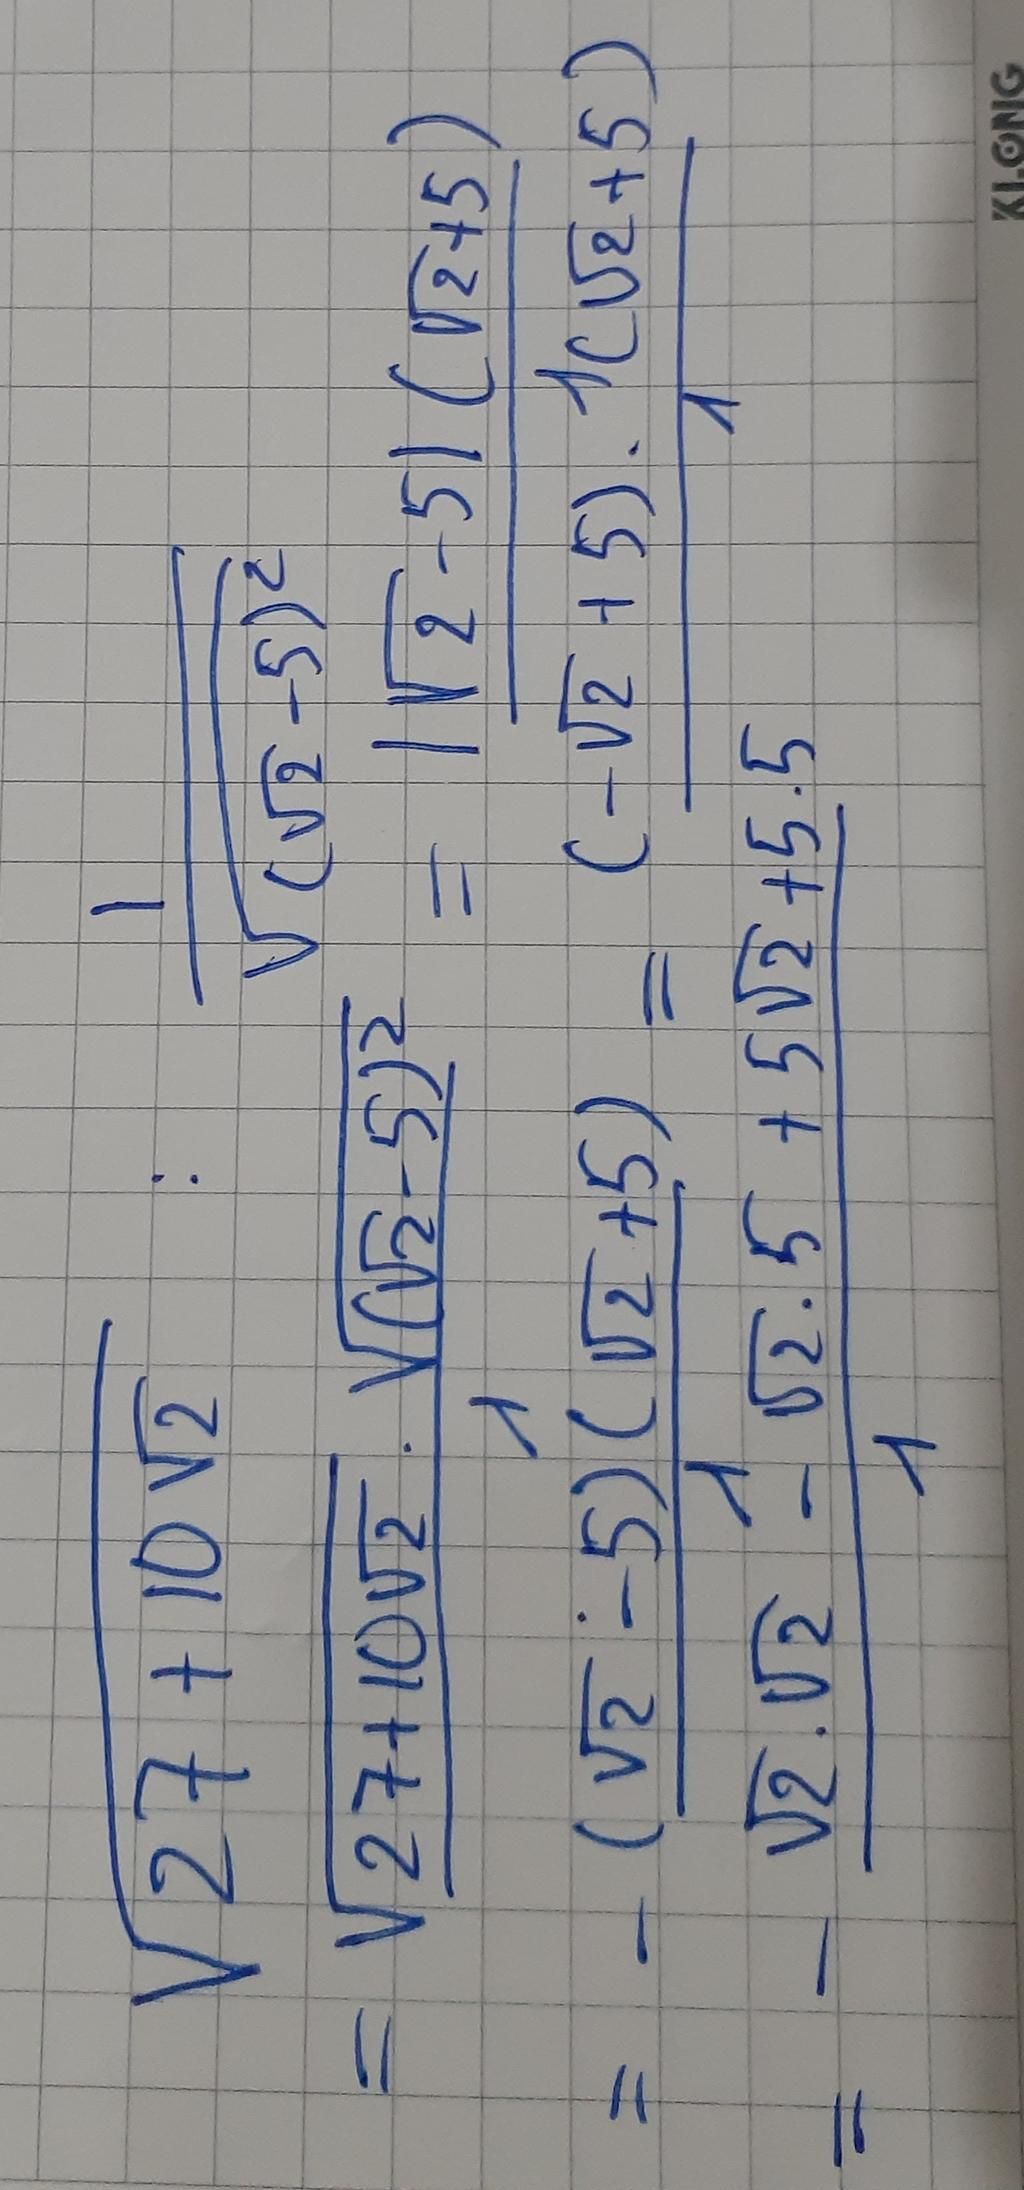 √(27+10√2) : 1/√((√2-5)²)
= √(27+10√2) . √((√2-5)²)/1 = |√2-5|(√2+5)
= -(√2-5)(√2+5)/1 = (-√2+5).1(√2+5)/1
= - √2.√2 - √2.5 + 5√2+5.5/1
KLONG